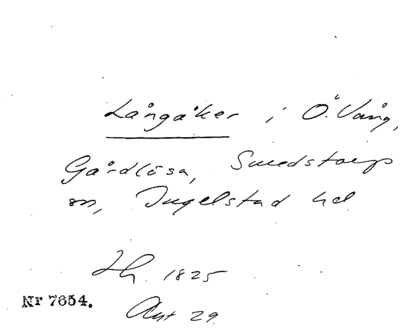 Långåker i Ö. Vång,
Gårdlösa, Smedstorps
sn, Ingelstad hd
Lh. 1825
Akt 29
Nr 7654.